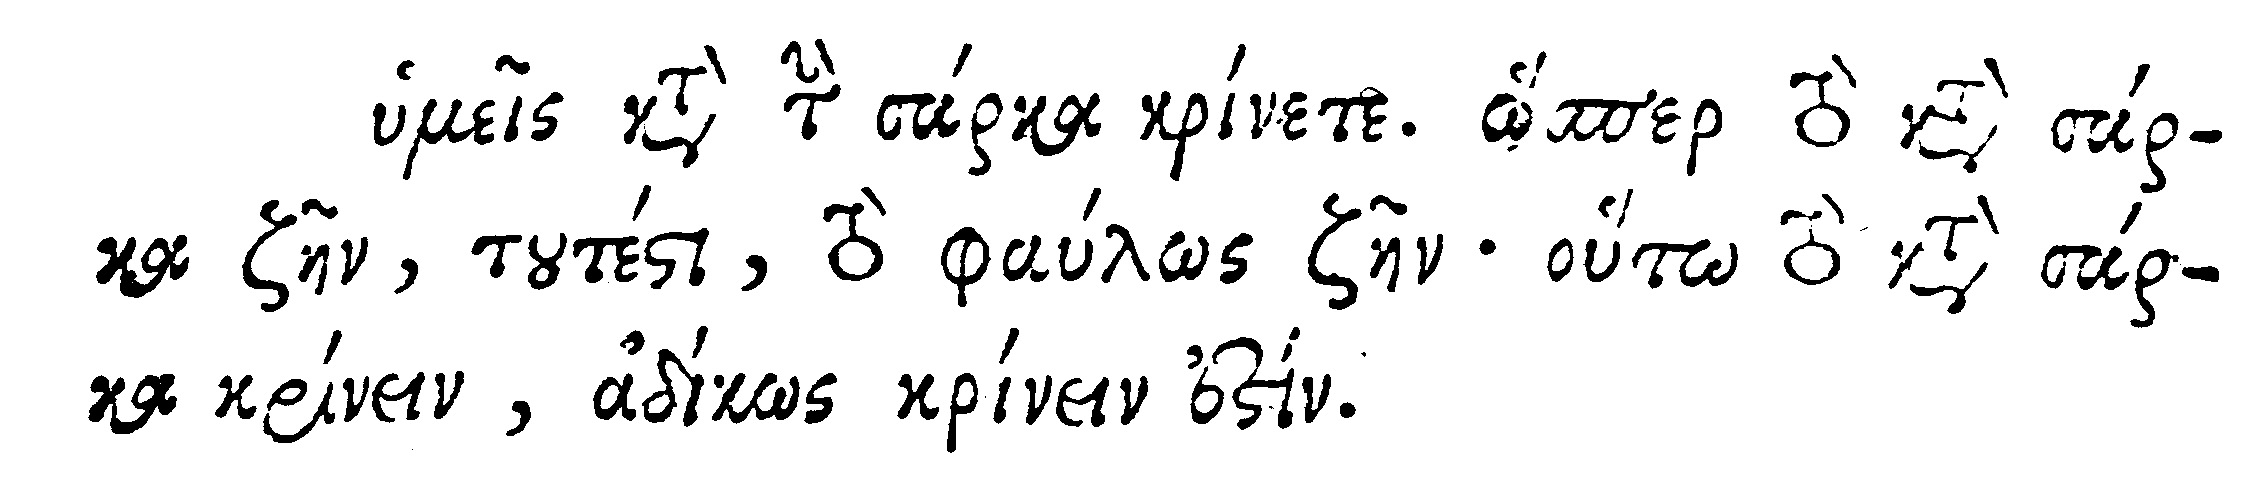 ὑμεῖς κατὰ τὴν σάρκα κρίνετε. ὥσπερ τὸ κατὰ σάρ-
κα ζῆν, τουτέστι, τὸ φαύλως ζῆν· οὕτω τὸ κατὰ σάρ-
κα κρίνειν, ἀδίκως κρίνειν ἐστίν.